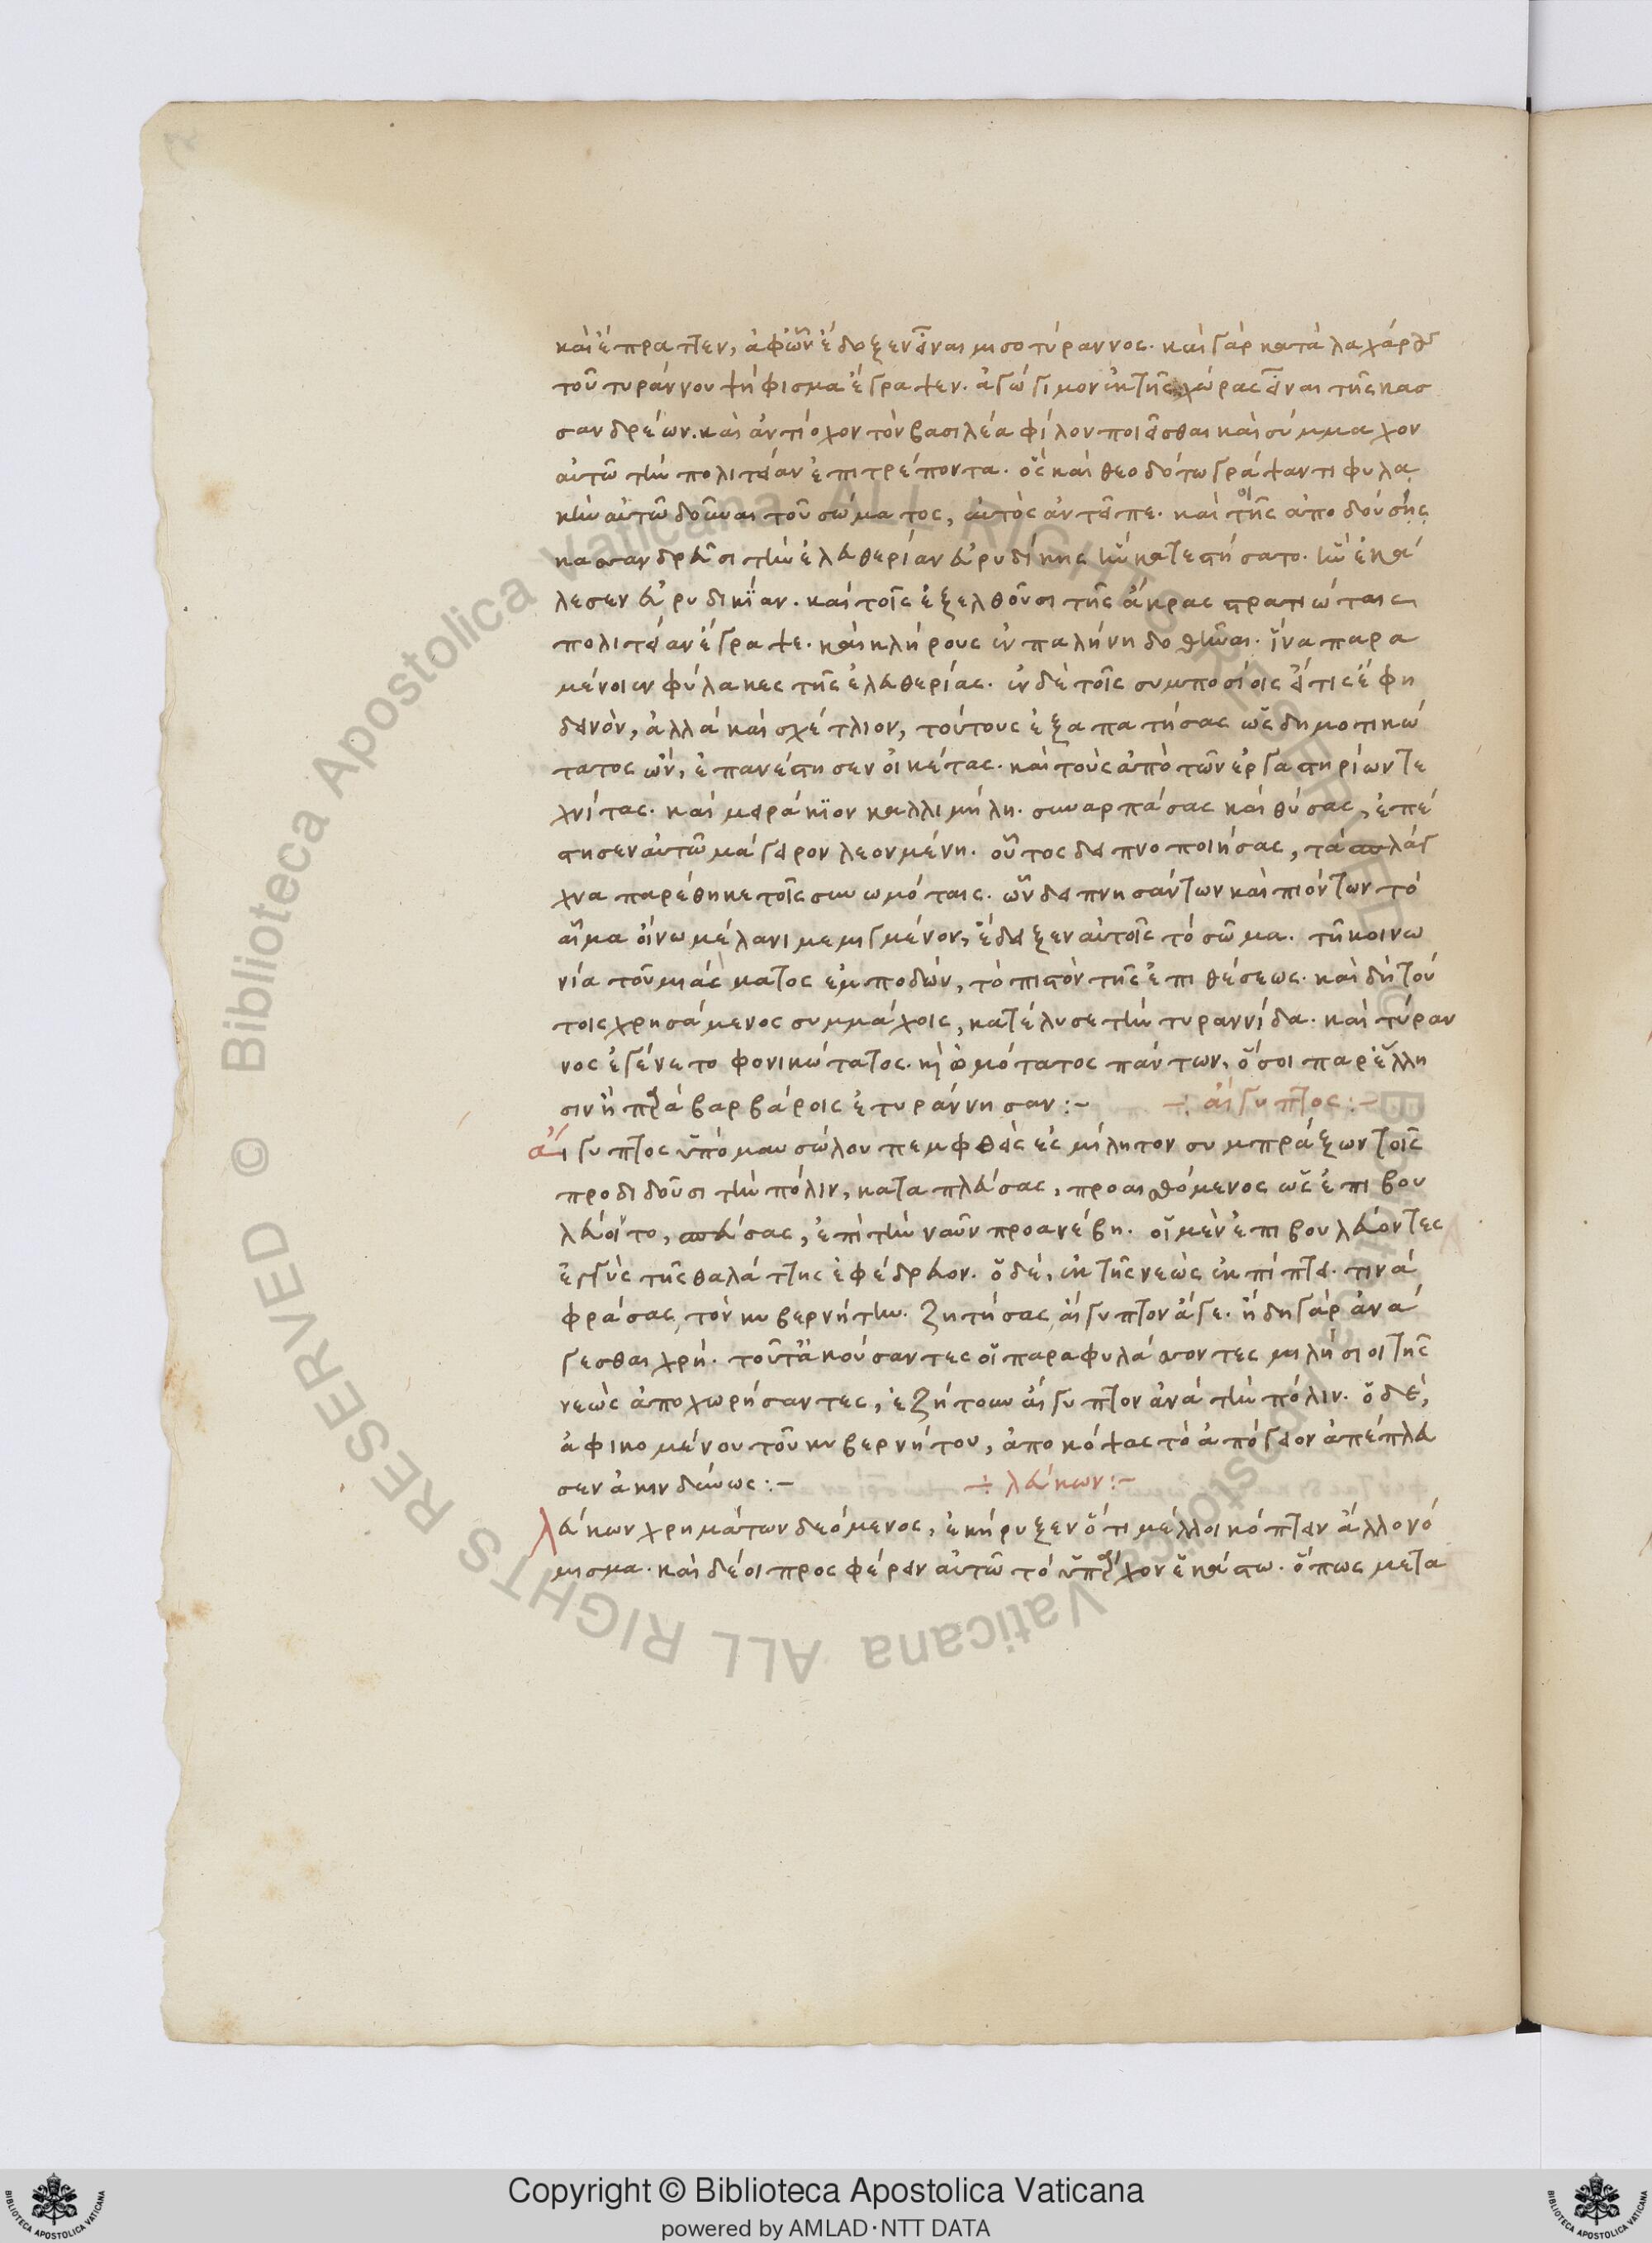 καὶ ἔπραττεν, ἀφ' ὧν ἔδοξεν εἶναι μισοτύραννος. καὶ γὰρ κατὰ λαχάρους
τοῦ τυράννου ψήφισμα ἔγραψεν. ἀγώγιμον ἐκ τῆς χώρας εἶναι τῆς κασ
σανδρέων. καὶ ἀντίοχον τὸν βασιλέα φίλον ποιεῖσθαι καὶ σύμμαχον
αὐτῶ τὴν πολιτείαν ἐπιτρέποντα. ὃς καὶ θεοδότω γράψαντι φυλα
κὴν αὐτῶ δοῦναι τοῦ σώματος, αὐτὸς ἀντεῖπε. καὶ τῆς ἀποδούσης
κασανδρεῦσι τὴν ἐλευθερίαν εὐρυδίκης ἣν κατεστήσατο. ἣν ἐκά
λεσεν εὐρυδικϊαν. καὶ τοῖς ἐξελθοῦσι τῆς ἄκρας στρατιώταις
πολιτείαν ἔγραψε. καὶ κλήρους ἐν παλήνη δοθῆναι. ἵνα παρα
μένοιεν φύλακες τῆς ἐλευθερίας. ἐν δὲ τοῖς συμποσίοις εἴ τις ἔφη
δεινὸν, ἀλλὰ καὶ σχέτλιον, τούτους ἐξαπατήσας ὡς δημοτικώ
τατος ὢν, ἐπανέστησεν οἰκέτας. καὶ τοὺς ἀπὸ τῶν ἐργαστηρίων τε
χνίτας. καὶ μειράκϊον καλλιμήλη. συναρπάσας καὶ θύσας, ἐπέ
στησεν αὐτῶ μάγειρον λεονμένη. οὗτος δειπνοποιήσας, τὰ σπλάγ
χνα παρέθηκε τοῖς συνωμόταις. ὧν δειπνησάντων καὶ πιόντων τὸ
αἷμα οἴνω μέλανι μεμιγμένον, ἔδειξεν αὐτοῖς τὸ σῶμα. τῆ κοινω
νία τοῦ μιάσματος ἐμποδὼν, τὸ πιστὸν τῆς ἐπιθέσεως. καὶ δὴ τού
τοις χρησάμενος συμμάχοις, κατέλυσε τὴν τυραννίδα. καὶ τύραν
νος ἐγένετο φονικώτατος. καὶ ὠμότατος πάντων, ὅσοι παρ' ἕλλη
σιν ἢ παρὰ βαρβάροις ἐτυράννησαν :- ÷ αἴγυπτος :-
αἴγυπτος ὑπὸ μαυσώλου πεμφθεὶς ἐς μίλητον συμπράξων τοῖς
προδιδοῦσι τὴν πόλιν, καταπλεύσας, προαισθόμενος ὡς ἐπιβου
λεύοιτο, σπεύσας, ἐπὶ τὴν ναῦν προανέβη. οἱ μὲν ἐπιβουλεύοντες
ἐγγὺς τῆς θαλάττης ἐφέδρευον. ὁ δὲ, ἐκ τῆς νεὼς ἐκπίπτει. τινὰ
φράσας, τὸν κυβερνήτην. ζητήσας, αἴγυπτον ἄγε. ἤδη γὰρ ἀνά
γεσθαι χρή. τοῦτ' ἀκούσαντες οἱ παραφυλάσσοντες μιλήσιοι τῆς
νεὼς ἀποχωρήσαντες, ἐζήτουν αἴγυπτον ἀνὰ τὴν πόλιν. ὁ δὲ,
ἀφικομένου τοῦ κυβερνήτου, ἀποκόψας τὸ ἀπόγειον ἀπέπλευ
σεν ἀκινδύνως :- ÷ λεύκων :-
λεύκων χρημάτων δεόμενος, ἐκήρυξεν ὅτι μέλλοι κόπτειν ἄλλο νό
μισμα. καὶ δέοι προσφέρειν αὐτῶ τὸ ὑπάρχον ἑκάστω. ὅπως μετα